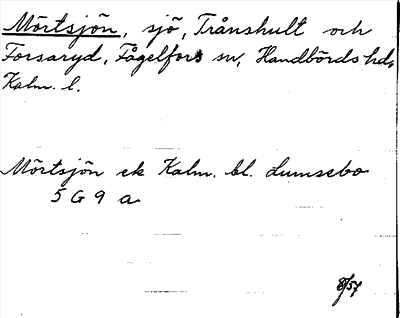 Mörtsjön, sjö, Trånshult och
Forsaryd, Fågelfors sn, Handbörds hd,
Kalm. l.
Mörtsjön ek Kalm. bl. Lumsebo
5 G 9 a
8/57